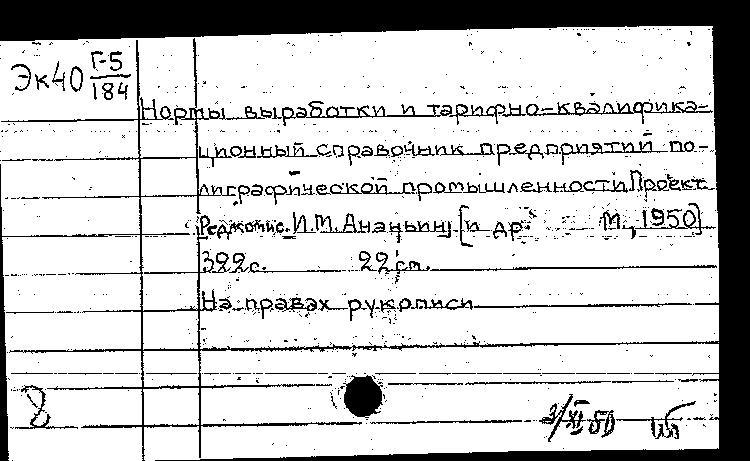 Эк40 Г-5
184
Нормы выработки и тарифно-квалифика-
ционный справочник предприятий по-
лиграфической промышленности. Проект.
Редкомис. И.М. Ананьин, [и др. М., 1950]
322с. 22см.
На правах рукописи
8
3/XI 50